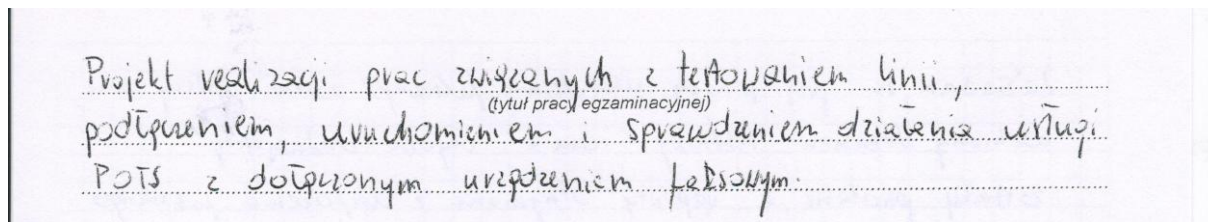 Projekt realizacji prac związanych z testowaniem linii,
(tytuł pracy egzaminacyjnej)
podłączeniem, uruchomieniem i sprawdzeniem działania usługi
POTS z dołączonym urządzeniem faksowym.